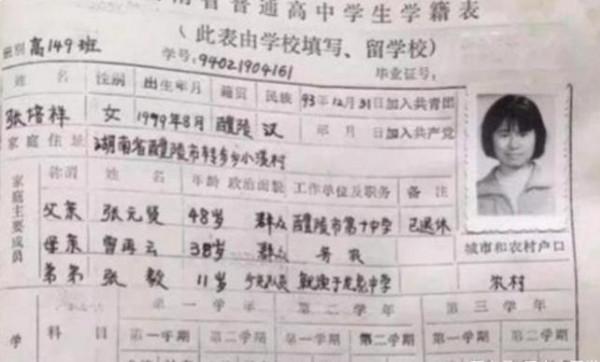 南省普通高中学生学籍表
(此表由学校填写、留学校)
班别 高149班
学号: 94021904161 毕业证号:
姓名 性别 出生年月 籍贯 民族 93年12月31日加入共青团
张培祥 女 1979年8月 醴陵 汉 年 月 日加入共产党
家庭住址 湖南省醴陵市转步乡小溪村
家庭主要成员 称谓 姓名 年龄 政治面貌 工作单位及职务 备注
父亲 张元贤 48岁 群众 醴陵市第十中学 已退休
母亲 曾再云 38岁 群众 务农
城市和农村户口
弟弟 张毅 11岁 少先队员 就读于 中学
农村
学 科目 第一学年 第二学年 第三学年
第一学期 第二学期 第一学期 第二学期 第一学期 第二学期